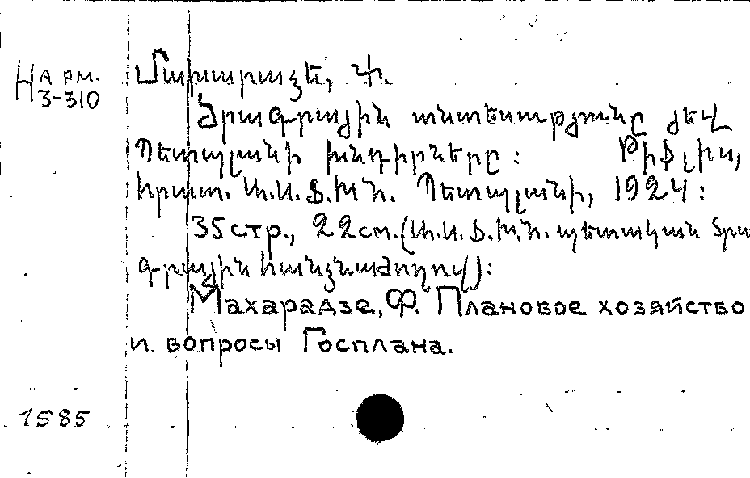 На рм.
3-310
Մախարաձե, Ֆ.
Ծրագրային տնտեսությունը յեվ
Պետպլանի խնդիրները: Թիֆլիս,
հրատ. Ա.Ս.Ֆ.Խ.Հ. Պետպլանի, 1924:
35стр., 22см. պետական ծրա
գրային հանձնաժողով):
Махарадзе, Ф. Плановое хозяйство
и вопросы Госплана.
1585